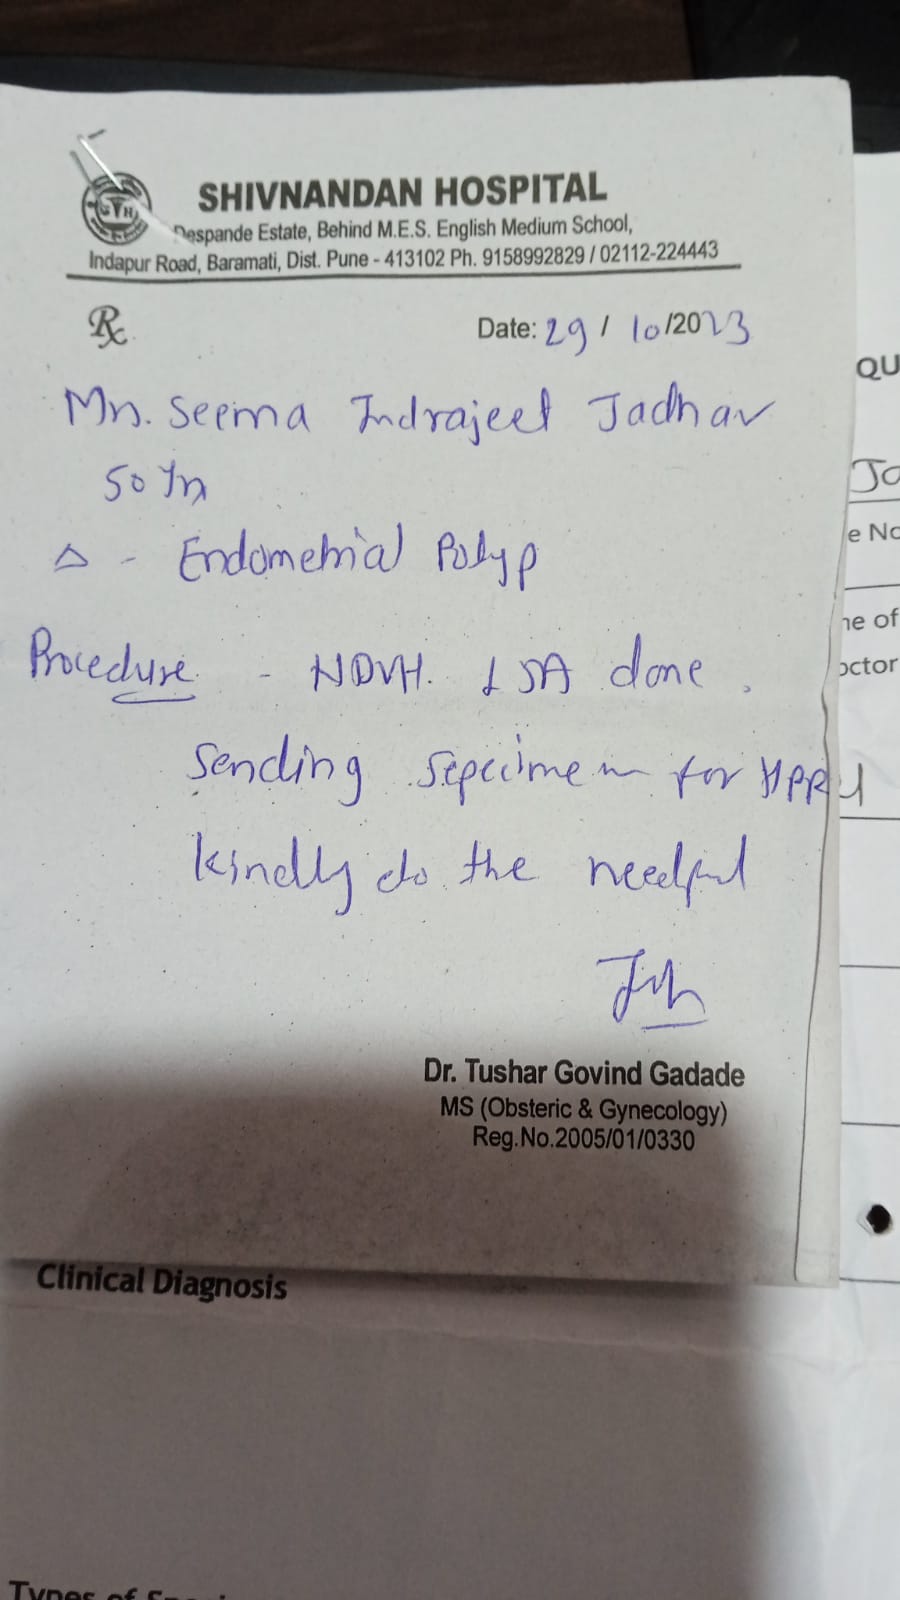 SHIVNANDAN HOSPITAL
Despande Estate, Behind M.E.S. English Medium School,
Indapur Road, Baramati, Dist. Pune - 413102 Ph. 9158992829 / 02112-224443
Rx
Date: 29 / 10/2023
Mrs. Seema Indrajeet Jadhav
50 Yrs
△ - Endometrial Polyp
Procedure - NDVH. LSA done.
Sending Sepecimen for HPR
kindly do the needful
Dr. Tushar Govind Gadade
MS (Obsteric & Gynecology)
Reg.No.2005/01/0330
QU
Ja
e No
ne of
octor
Clinical Diagnosis
Types of